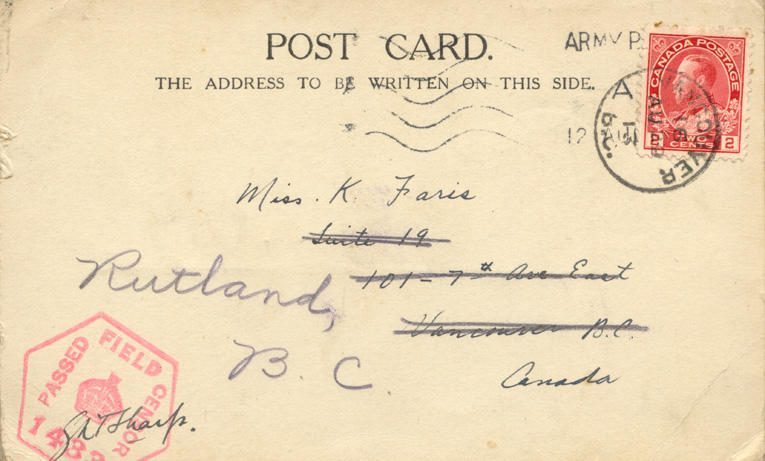 POST CARD.
THE ADDRESS TO BE WRITTEN ON THIS SIDE.
ARMY P
CANADA POSTAGE
2 TWO CENTS 2
VANCOUVER B.C.
A
12 AU
Miss. K. Faris
Suite 19
101-7th Ave East
Vancouver B.C.
Canada
Rutland,
B.C.
PASSED FIELD CENSOR
148
Sharp.